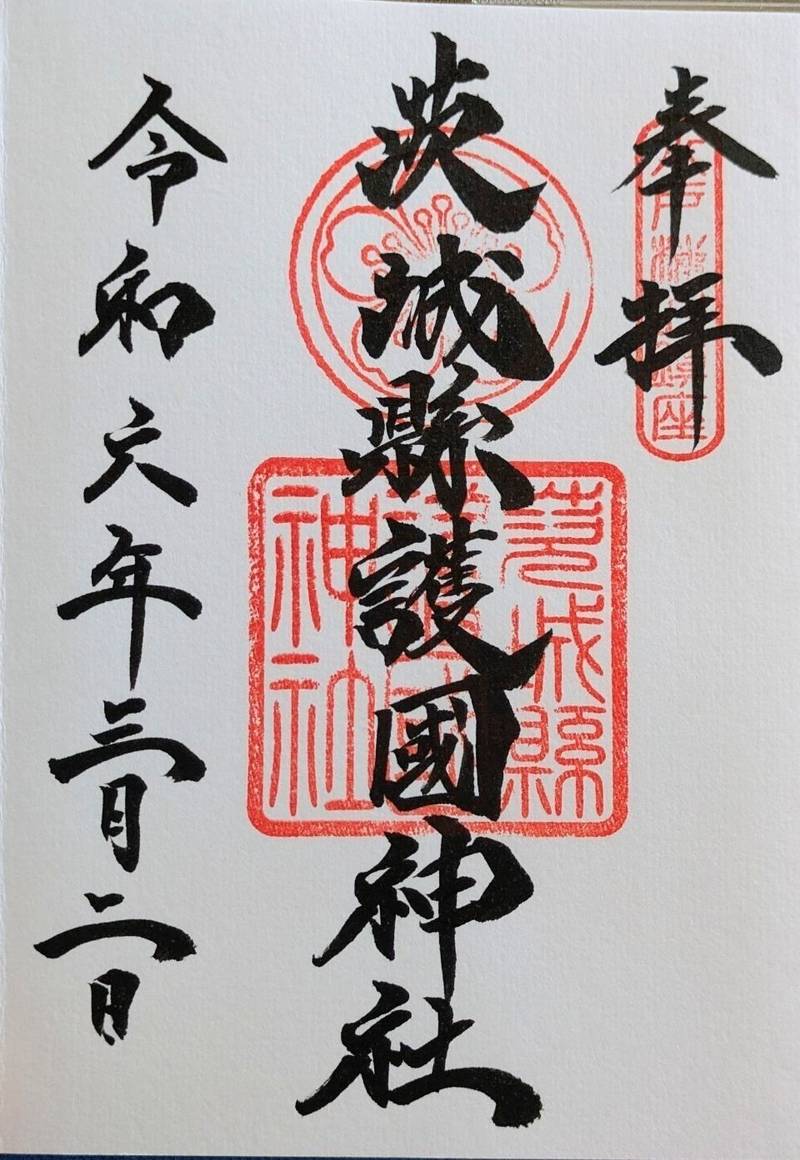 奉拝
茨城縣護國神社
令和六年三月二日
茨城縣
護國
神社